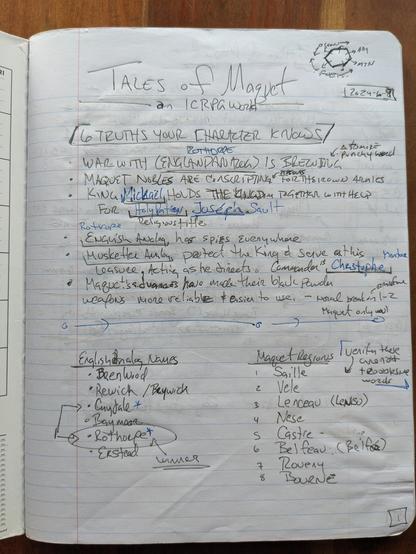 TALES of Maquet
an ICRPG world
2024-6-9
6 TRUTHS YOUR CHARACTER KNOWS
ROTHORPE
• WAR WITH (ENGLAND ANALOG) IS BREWING
• MAQUET NOBLES ARE CONSCRIPTING FOR THEIR OWN ARMIES
• KING Mickael HOLDS THE KINGDOM TOGETHER WITH HELP
FOR Holy Patron, Joseph Sault
Religious title
Rothorpe
• English Analog has spies everywhere
• Musketeer Analog protect the King & serve at his
leasure, Acting as he directs. Commander Christophe
• Maquet's advances have made their black powder
weapons more reliable & easier to use. - normal break on 1-2
Maquet only on 1
English Analog Names
• Brenwood
• Rewick / Baywick
• Guydale *
• Baymoor
• Rothorpe *
• Erstead
winner
Maquet Regions
1 Saille
2 Vele
3 Lenceau (Lenso)
4 Nese
5 Castre
6 Belfeau (Belfoe)
7 Roveny
8 Bourne
verify these
are not
words
1